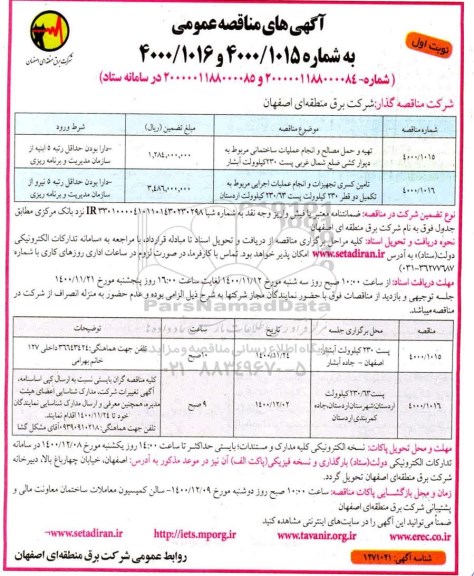 آگهی های مناقصه عمومی
به شماره ۴۰۰۰/۱۰۱۵ و ۴۰۰۰/۱۰۱۶
(شماره- ۲۰۰۰۰۰۱۱۸۸۰۰۰۰۸۴ و ۲۰۰۰۰۰۱۱۸۸۰۰۰۰۸۵ در سامانه ستاد)
نوبت اول
شرکت برق منطقه‌ای اصفهان
شرکت مناقصه گذار: شرکت برق منطقه‌ای اصفهان
شماره مناقصه
موضوع مناقصه
مبلغ تضمین (ریال)
شرط ورود
۴۰۰۰/۱۰۱۵
تهیه و حمل مصالح و انجام عملیات ساختمانی مربوط به
دیوار کشی ضلع شمال غربی پست ۲۳۰کیلوولت آبشار
۱,۲۸۴,۰۰۰,۰۰۰
-دارا بودن حداقل رتبه ۵ ابنیه از
سازمان مدیریت و برنامه ریزی
۴۰۰۰/۱۰۱۶
تامین کسری تجهیزات و انجام عملیات اجرایی مربوط به
تکمیل دو قطر ۲۳۰ کیلوولت پست ۲۳۰/۶۳ کیلوولت اردستان
۳,۴۸۶,۰۰۰,۰۰۰
-دارا بودن حداقل رتبه ۵ نیرو از
سازمان مدیریت و برنامه ریزی
نوع تضمین شرکت در مناقصه: ضمانتنامه معتبر یا فیش واریز وجه نقد به شماره شبا IR ۳۳۰۱۰۰۰۰۴۱۰۱۱۰۱۴۳۰۲۳۰۲۹۸ نزد بانک مرکزی مطابق
جدول فوق به نام شرکت برق منطقه ای اصفهان
نحوه دریافت و تحویل اسناد: کلیه مراحل برگزاری مناقصه از دریافت و تحویل اسناد تا مبادله قرارداد، با مراجعه به سامانه تدارکات الکترونیکی
دولت(ستاد) به آدرس www.setadiran.ir امکان پذیر خواهد بود. تماس با کارفرما، در صورت لزوم در ساعات اداری روزهای کاری با شماره
۰۳۱-۳۶۲۷۷۶۸۷
مهلت دریافت اسناد: از ساعت ۱۰:۰۰ صبح روز سه شنبه مورخ ۱۴۰۰/۱۱/۱۲ لغایت ساعت ۱۶:۰۰ روز پنجشنبه مورخ ۱۴۰۰/۱۱/۲۱
جلسه توجیهی و بازدید از مناقصات فوق با حضور نمایندگان مجاز شرکتها به شرح ذیل الزامی بوده و عدم حضور به منزله انصراف از شرکت در
مناقصه میباشد.
مناقصه
محل برگزاری جلسه
تاریخ
ساعت
توضیحات
۴۰۰۰/۱۰۱۵
پست ۲۳۰ کیلوولت آبشار
اصفهان - جاده آبشار
۱۴۰۰/۱۱/۲۴
۱۰صبح
تلفن جهت هماهنگی: ۳۶۶۴۳۴۲۴ داخلی ۱۲۷
خانم بهرامی
۴۰۰۰/۱۰۱۶
پست ۲۳۰/۶۳کیلوولت
اردستان:شهرستان اردستان،جاده
کمربندی اردستان
۱۴۰۰/۱۲/۰۲
۹ صبح
کلیه مناقصه گران بایستی نسبت به ارسال کپی اساسنامه،
آگهی تغییرات شرکت، مدارک شناسایی اعضای هیئت
مدیره، همچنین معرفی و ارسال مدارک شناسایی نمایندگان
خود تا ۱۴۰۰/۱۱/۲۴ اقدام نمایند.
تلفن جهت هماهنگی: ۰۹۳۰۹۱۰۲۱۸ آقای مشکل گشا
مهلت و محل تحویل پاکات: نسخه الکترونیکی کلیه مدارک و مستندات بایستی حداکثر تا ساعت ۱۴:۰۰ روز یکشنبه مورخ ۱۴۰۰/۱۲/۰۸ در سامانه
تدارکات الکترونیکی دولت(ستاد) بارگذاری و نسخه فیزیکی(پاکت الف) آن نیز در موعد مذکور به آدرس: اصفهان، خیابان چهارباغ بالا، دبیرخانه
شرکت برق منطقه‌ای اصفهان تحویل گردد.
زمان و محل بازگشایی پاکات مناقصه: ساعت ۱۰:۰۰ صبح روز دوشنبه مورخ ۱۴۰۰/۱۲/۰۹- سالن کمیسیون معاملات ساختمان معاونت مالی و
پشتیبانی شرکت برق منطقه‌ای اصفهان
ضمناً می‌توانید این آگهی را در سایت‌های اینترنتی مشاهده کنید
www.erec.co.ir www.tavanir.org.ir http://iets.mporg.ir www.setadiran.ir
شناسه آگهی: ۱۲۷۱۰۲۱
روابط عمومی شرکت برق منطقه‌ای اصفهان
ParsNamadData
۰۲۱-۸۸۳۴۹۶۷۰-۵